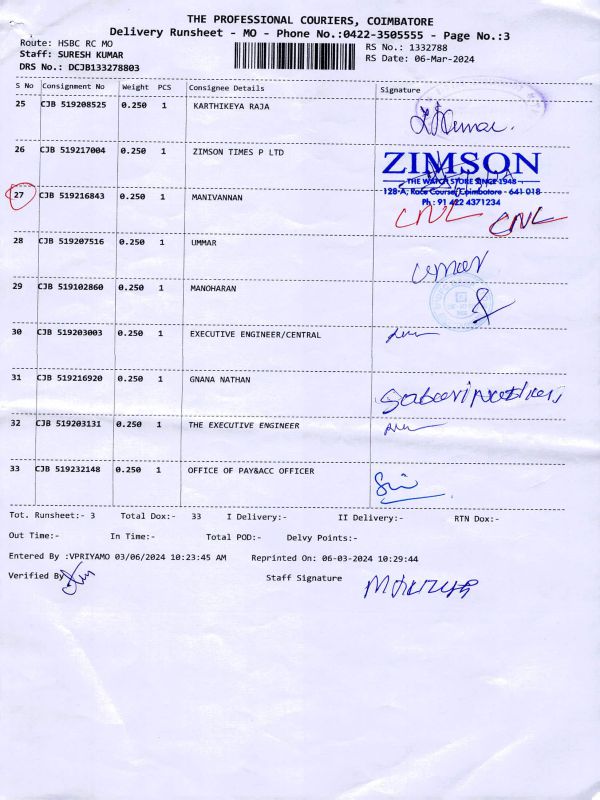 THE PROFESSIONAL COURIERS, COIMBATORE
Delivery Runsheet - MO - Phone No.:0422-3505555 - Page No.:3
Route: HSBC RC MO
RS No.: 1332788
Staff: SURESH KUMAR
RS Date: 06-Mar-2024
DRS No.: DCJB133278803
S No Consignment No Weight PCS Consignee Details Signature
25 CJB 519208525 0.250 1 KARTHIKEYA RAJA
26 CJB 519217004 0.250 1 ZIMSON TIMES P LTD
ZIMSON
THE WATCH STORE SINCE 1948
128-A, Race Course, Coimbatore - 641 018
Ph : 91 422 4371234
27 CJB 519216843 0.250 1 MANIVANNAN CNL CNL
28 CJB 519207516 0.250 1 UMMAR umar
29 CJB 519102860 0.250 1 MANOHARAN
30 CJB 519203003 0.250 1 EXECUTIVE ENGINEER/CENTRAL
31 CJB 519216920 0.250 1 GNANA NATHAN
32 CJB 519203131 0.250 1 THE EXECUTIVE ENGINEER
33 CJB 519232148 0.250 1 OFFICE OF PAY&ACC OFFICER
Tot. Runsheet:- 3 Total Dox:- 33 I Delivery:- II Delivery:- RTN Dox:-
Out Time:- In Time:- Total POD:- Delvy Points:-
Entered By :VPRIYAMO 03/06/2024 10:23:45 AM Reprinted On: 06-03-2024 10:29:44
Verified By Staff Signature